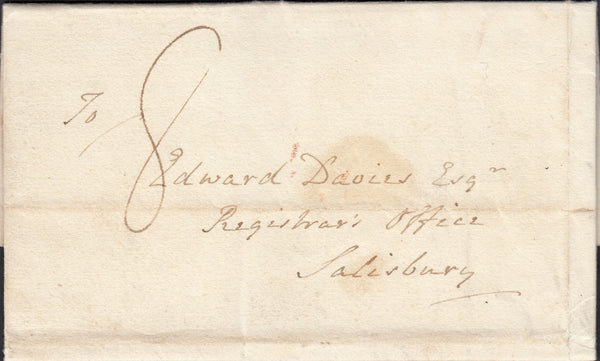 To
8
Edward Davies Esqr
Registrar's Office
Salisbury